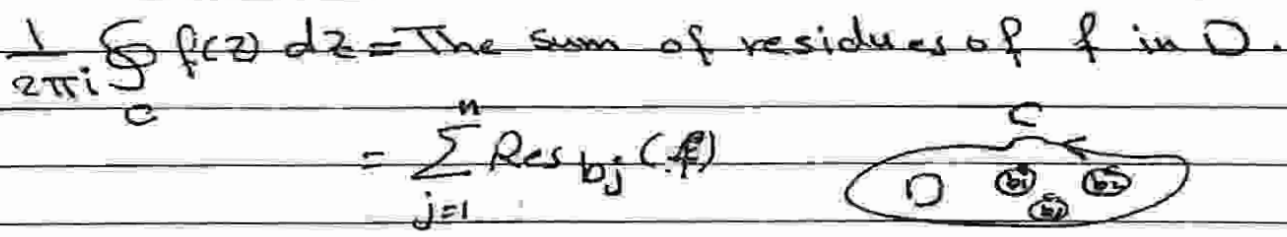 1/2πi ∮_C f(z) dz = The sum of residues of f in D.
= ∑_{j=1}^{n} Res_{b_j} (f)
C
D b₁ b₂